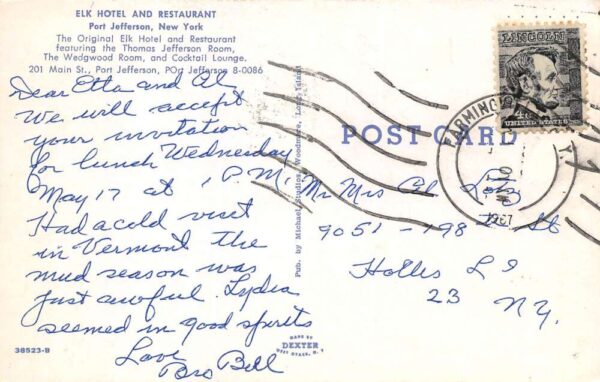 ELK HOTEL AND RESTAURANT
Port Jefferson, New York
The Original Elk Hotel and Restaurant
featuring the Thomas Jefferson Room,
The Wedgwood Room, and Cocktail Lounge.
201 Main St., Port Jefferson, POrt Jefferson 8-0086
Dear Etta and Al
We will accept
your invitation
for lunch Wednesday
May 17 at 1 P.M.
Had a cold visit
in Vermont the
mud season was
just awful. Lydia
seemed in good spirits
Love
Bro Bill
38523-B
Pub. by Michael Studios, Woodmere, Long Island
POST CARD
LINCOLN
4¢
UNITED STATES
FARMING
Y.
1967
Mr Mrs Al
9051-198 St
Hollis L I
23 N.Y.
MADE BY
DEXTER
WEST NYACK, N.Y.